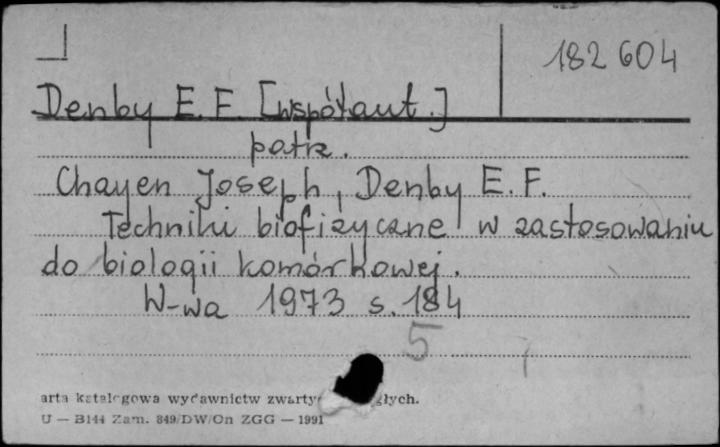 182 604
Denby E. F. [współaut.]
patrz.
Chayen Joseph, Denby E. F.
Techniki biofizyczne w zastosowaniu
do biologii komórkowej.
W-wa 1973 s. 184
5
arta katalogowa wydawnictw zwarty głych.
U — B144 Zam. 849/DW/On ZGG — 1991